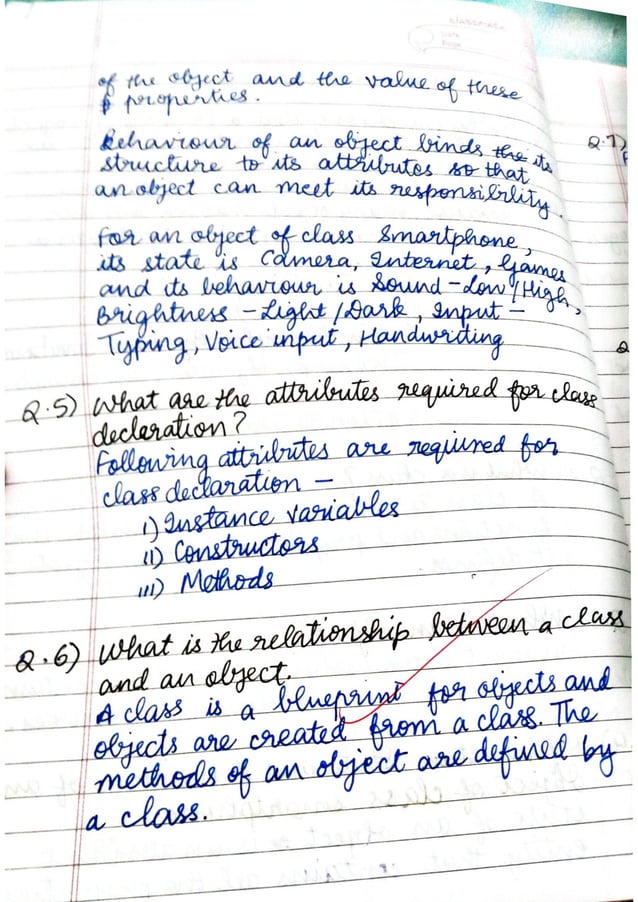 classmate
Date
Page
of the object and the value of these
properties.
Behaviour of an object binds the its
structure to its attributes so that
an object can meet its responsibility.
For an object of class Smartphone,
its state is Camera, Internet, Games
and its behaviour is Sound-Low/High,
Brightness - Light/Dark, Input -
Typing, Voice input, Handwriting
Q.5) What are the attributes required for class
decleration?
Following attributes are requiured for
class declaration -
i) Instance variables
ii) Constructors
iii) Methods
Q.6) What is the relationship between a class
and an object.
A class is a blueprint for objects and
objects are created from a class. The
methods of an object are defined by
a class.
Q.7)